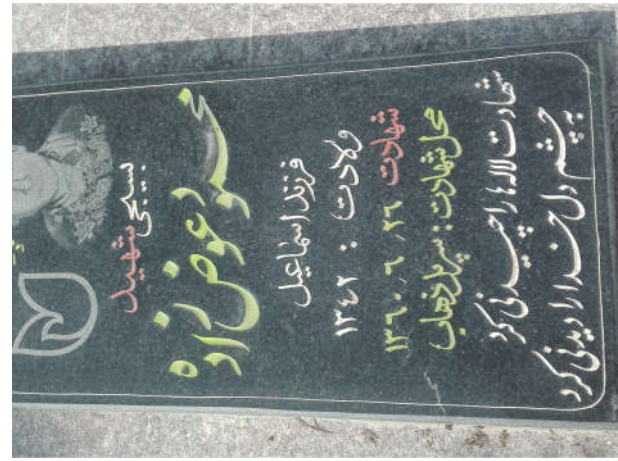 بسیجی شهید
محمود عوض زاده
فرزند اسماعیل
ولادت : ۱۳۴۲
شهادت ۱۳۶۰/۶/۲۶
محل شهادت : سرپل ذهاب
شهادت لاله‌ها را چیدنی کرد
به چشم دل خدا را دیدنی کرد